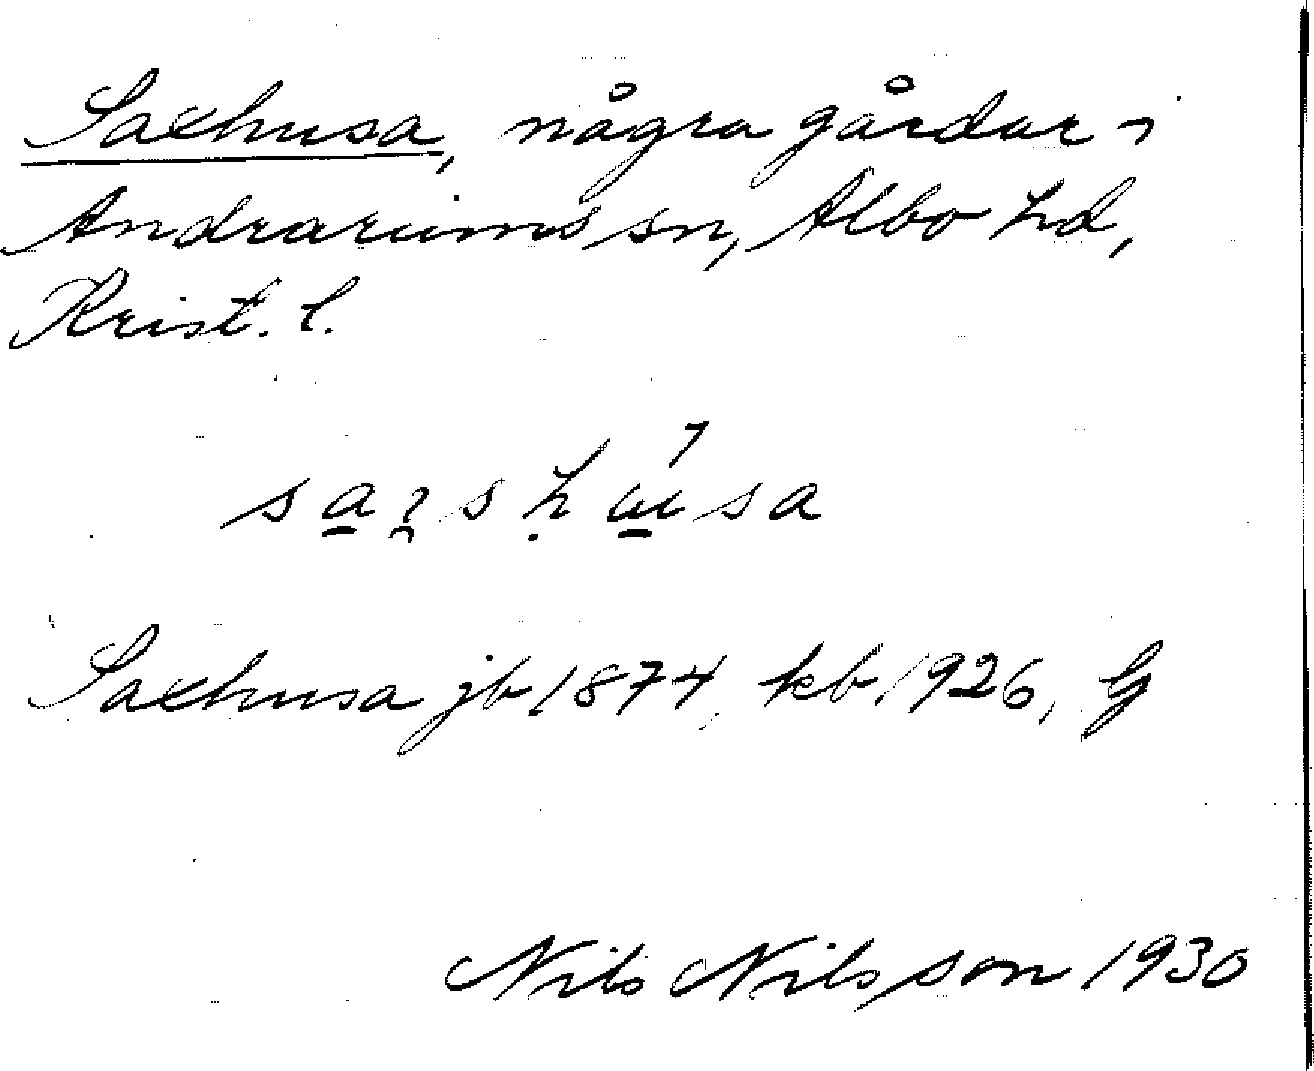 Saxhusa, några gårdar i
Andrarums sn, Albo hd,
Krist. l.
Saxhusa jb 1874, kb 1926, G
Nils Nilsson 1930